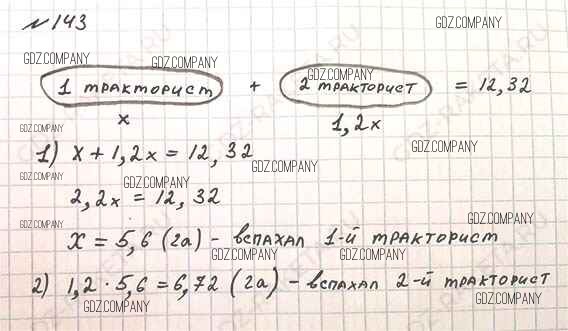 №143
GDZ.COMPANY
GDZ.COMPANY GDZ.COMPANY
GDZ.COMPANY
1 тракторист + 2 тракторист = 12,32
x 1,2x
GDZ.COMPANY
GDZ.COMPANY
1) x + 1,2x = 12,32
GDZ.COMPANY
GDZ.COMPANY GDZ.COMPANY
2,2x = 12,32
GDZ.COMPANY GDZ.COMPANY
x = 5,6 (га) - вспахал 1-й тракторист
GDZ.COMPANY GDZ.COMPANY
2) 1,2 · 5,6 = 6,72 (га) - вспахал 2-й тракторист
GDZ.COMPANY GDZ.COMPANY